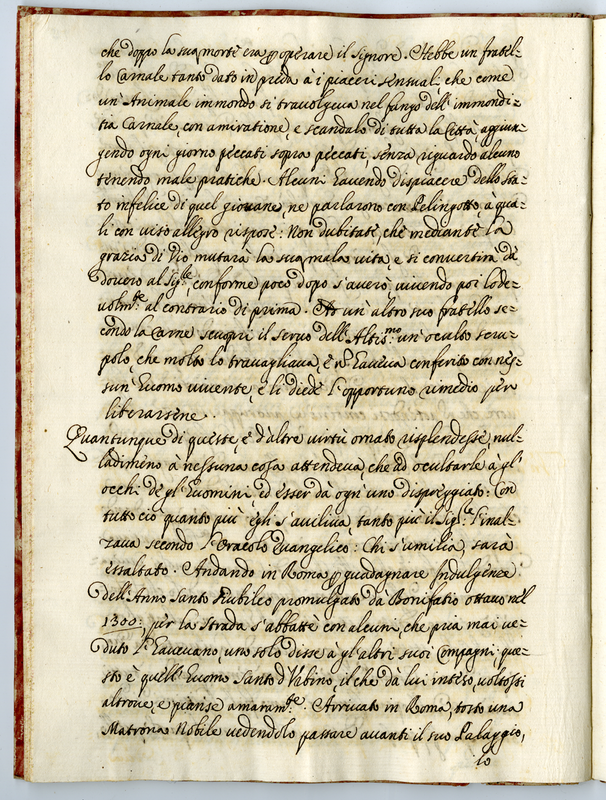 che doppo la sua morte era p operare il Signore. Hebbe un fratel-
lo Carnale tanto dato in preda à i piaceri sensuali, che come
un' Animale immondo si travolgeva nel fango dell' immondi-
tia Carnale, con amiratione, e scandalo di tutta la Città, aggiun-
gendo ogni giorno peccati sopra peccati, senza riguardo alcuno
tenendo male pratiche. Alcuni havendo dispiacere dello sta-
to infelice di quel giovane, ne parlarono con Pelingotto, à qua-
li con viso allegro rispose: Non dubitate, che mediante la
grazia di Dio mutarà la sua mala vita, e si convertirà dà
dovero al Sig:re, conforme poco dopo s'averò vivendo poi lode-
volm:te al contrario di prima. Ad un' altro suo fratello se-
condo la Carne scuoprì il servo dell' Altis:mo un' oculto scru-
polo, che molto lo travagliava, e nõ haveva conferito con nes-
sun' huomo vivente, e li diede l'opportuno rimedio per
liberarsene.
Quantunque di queste, e d'altre virtù ornato risplendesse, nul-
ladimeno à nessuna cosa attendeva, che ad ocultarle à gl'
occhi de gl' huomini, ed esser dà ogn' uno dispreggiato: Con
tutto ciò quanto più egli s'aviliva, tanto più il Sig:re l'inal-
zava secondo l'Oracolo Evangelico: Chi s'umilia, sarà
essaltato. Andando in Roma p guadagnare Indulgenze
dell' Anno Santo Jiubileo promulgato dà Bonifatio ottavo nel
1300: per la strada s'abbattè con alcuni, che prià mai ve-
duto l'havevano, uno solo disse à gl' altri suoi Compagni: que-
sto è quell' huomo Santo d'Urbino, il che da lui inteso, voltossi
altrove, e pianse amaram:te. Arrivato in Roma, tosto una
Matrona Nobile vedendolo passare avanti il suo Palaggio,
lo